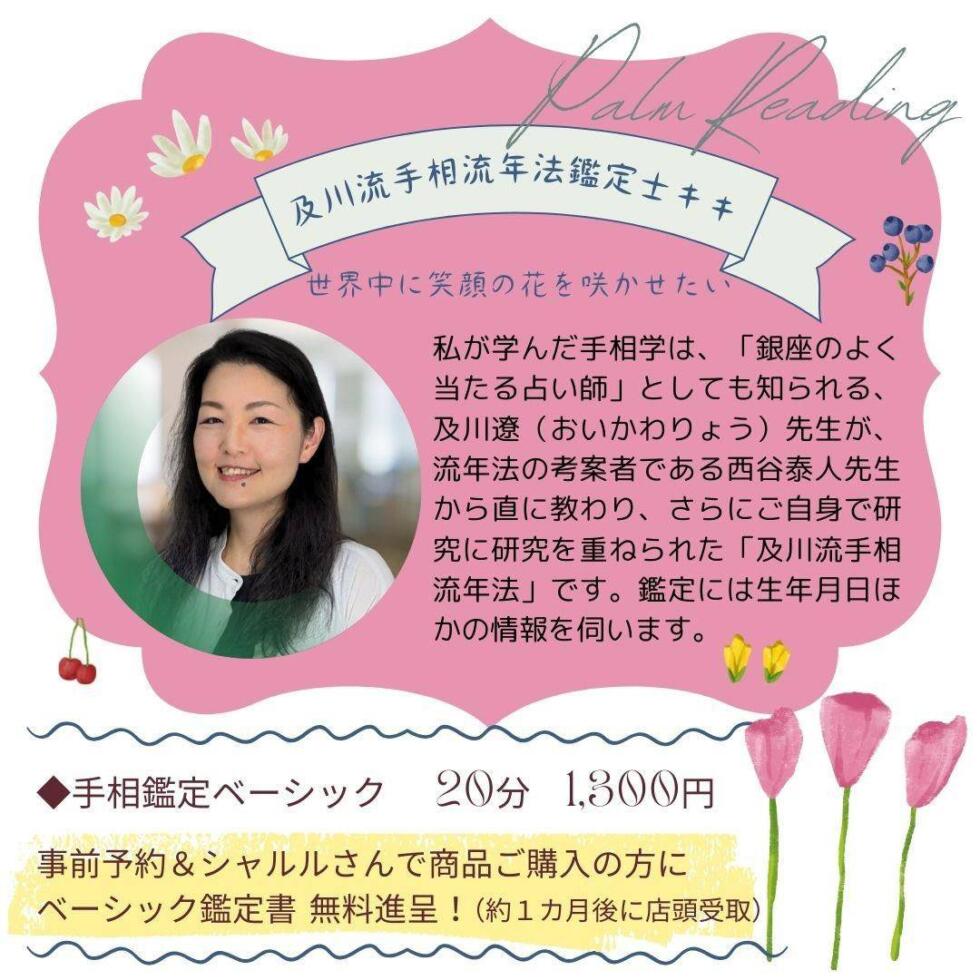 Palm Reading
及川流手相流年法鑑定士キキ
世界中に笑顔の花を咲かせたい
私が学んだ手相学は、「銀座のよく
当たる占い師」としても知られる、
及川遼（おいかわりょう）先生が、
流年法の考案者である西谷泰人先生
から直に教わり、さらにご自身で研
究に研究を重ねられた「及川流手相
流年法」です。鑑定には生年月日ほ
かの情報を伺います。
◆手相鑑定ベーシック 20分 1,300円
事前予約＆シャルルさんで商品ご購入の方に
ベーシック鑑定書 無料進呈！（約１カ月後に店頭受取）